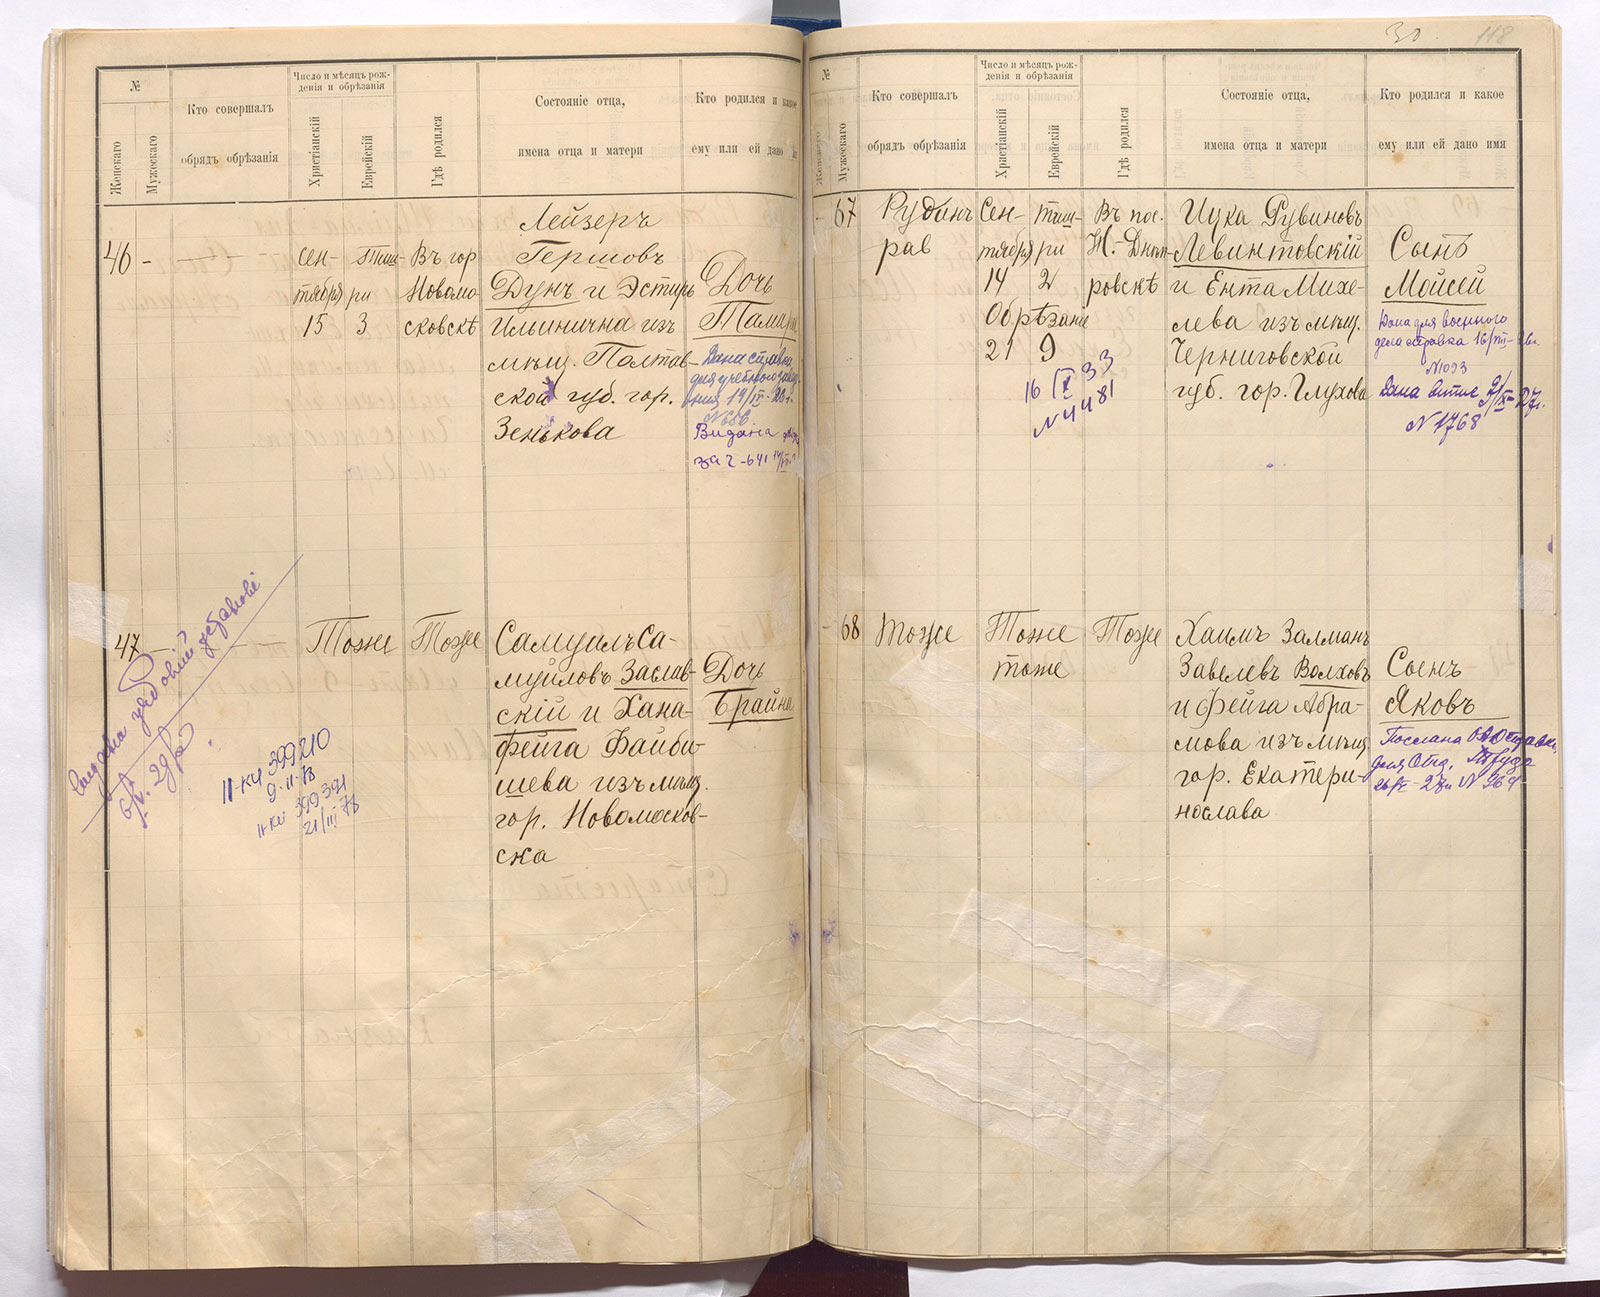 №
Женскаго
Мужескаго
Кто совершалъ
обрядъ обрѣзанія
Число и мѣсяцъ рож-
денія и обрѣзанія
Христіанскій
Еврейскій
Гдѣ родился
Состояніе отца,
имена отца и матери
Кто родился и какое
ему или ей дано
46
сен-
тября
15
Тиш-
ри
3
Въ гор
Новомо-
сковскѣ
Лейзеръ
Гершовъ
Дунъ и Эстиръ
Ильинична изъ
мѣщ. Полтав-
ской губ. гор.
Зенькова
Дочь
Тамара
Дана справка
для учебного
Видана
47
Тоже
Тоже
Самуилъ Са-
муиловъ Заслав-
скій и Хана-
фейга Файби-
шева изъ мѣщ.
гор. Новомосков-
ска
Дочь
Брайна
II-КИ 399210
9-II-78
399391
21/III 78
30
118
№
Женскаго
Мужескаго
Кто совершалъ
обрядъ обрѣзанія
Число и мѣсяцъ рож-
денія и обрѣзанія
Христіанскій
Еврейскій
Гдѣ родился
Состояніе отца,
имена отца и матери
Кто родился и какое
ему или ей дано имя
67
Рудинъ
рав
Сен-
тября
14
тиш-
ри
2
Обрѣзанъ
21 9
16 IX 33
N 4481
Въ пос.
Н.-Днѣп-
ровскѣ
Ицка Рувиновъ
Левинтовскій
и Ента Михе-
лева изъ мѣщ.
Черниговской
губ. гор. Глухова
Сынъ
Мойсей
для военного
дела справка 16/VIII-26г.
N 1093
27г.
N 1768
68
тоже
Тоже
тоже
Тоже
Хаимъ Залманъ
Завелевъ Волховъ
и Фейга Абра-
мова изъ мѣщ.
гор. Екатери-
нослава
Сынъ
Яковъ
Послана
для Отд. Труда